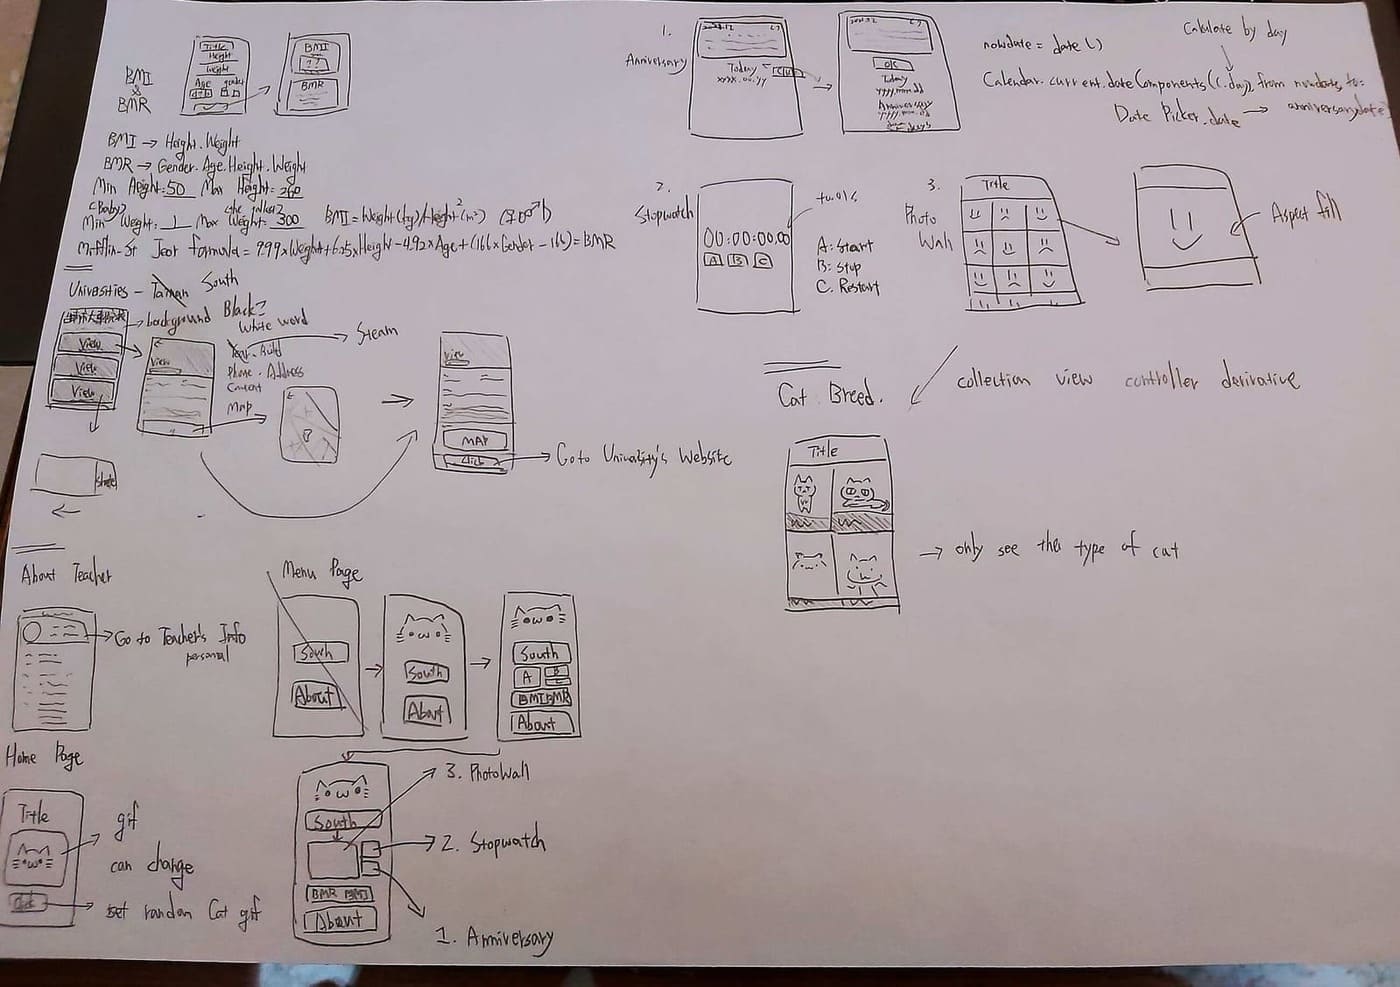 BMI
&
BMR
Title
Height
Weight
Age gender
BMI
??
BMR
BMI → Height. Weight
BMR → Gender. Age. Height. Weight
Min Height: 50 Max Height: 280
(Baby?)
Min Weight: 1 Max Weight: 300 BMI = Weight(kg)/Height²(m²)
Formula = 9.99×Weight+6.25×Height-4.92×Age+(166×Gender-161)=BMR
Universities - Tainan South
View
View
View
→ background Black?
White word
View
Phone. Address
Content
Map
Steam
View
MAP
Click
→ Go to University's Website
About Teacher
→ Go to Teacher's Info
personal
Menu Page
South
About
South
About
South
A
B
C
BMI BMR
About
Home Page
Title
gif
can change
set random Cat gif
South
BMR BMI
About
3. PhotoWall
2. Stopwatch
1. Anniversary
1.
Anniversary
Today
OK
Today
yyyy.mm.dd
Anniversary
yyyy.mm.dd
days
nowdate = date()
Calculate by day
Calendar.current.dateComponents([.day], from nowdate, to:
Date Picker.date → anniversarydate
2.
Stopwatch
00:00:00.00
A B C
A: Start
B: Stop
C. Restart
3.
Photo
Wall
Title
Aspect fill
Cat Breed.
collection view controller derivative
Title
→ only see the type of cat